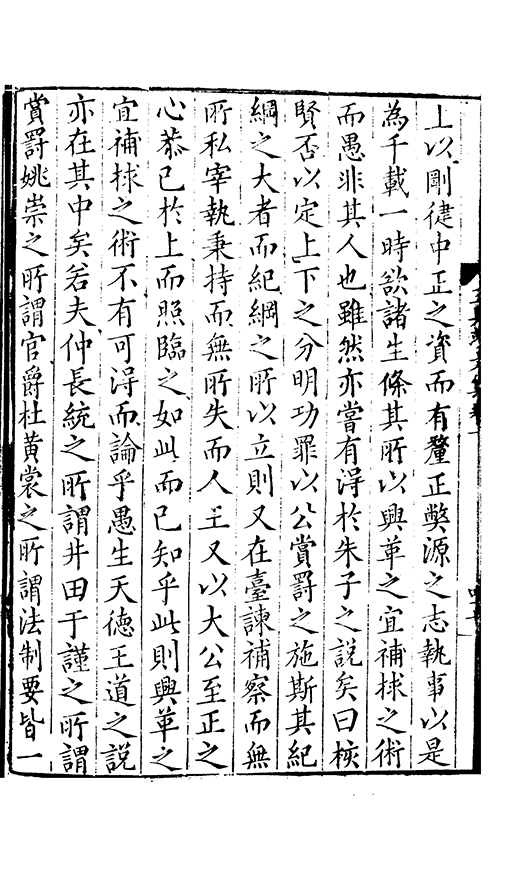 上以剛健中正之資而有釐正弊源之志執事以是
為千載一時欲諸生條其所以興革之宜補捄之術
而愚非其人也雖然亦嘗有得於朱子之說矣曰核
賢否以定上下之分明功罪以公賞罰之施斯其紀
綱之大者而紀綱之所以立則又在臺諫補察而無
所私宰執秉持而無所失而人主又以大公至正之
心恭己於上而照臨之如此而已知乎此則興革之
宜補捄之術不有可得而論乎愚生天德王道之說
亦在其中矣若夫仲長統之所謂井田于謹之所謂
賞罰姚崇之所謂官爵杜黃裳之所謂法制要皆一